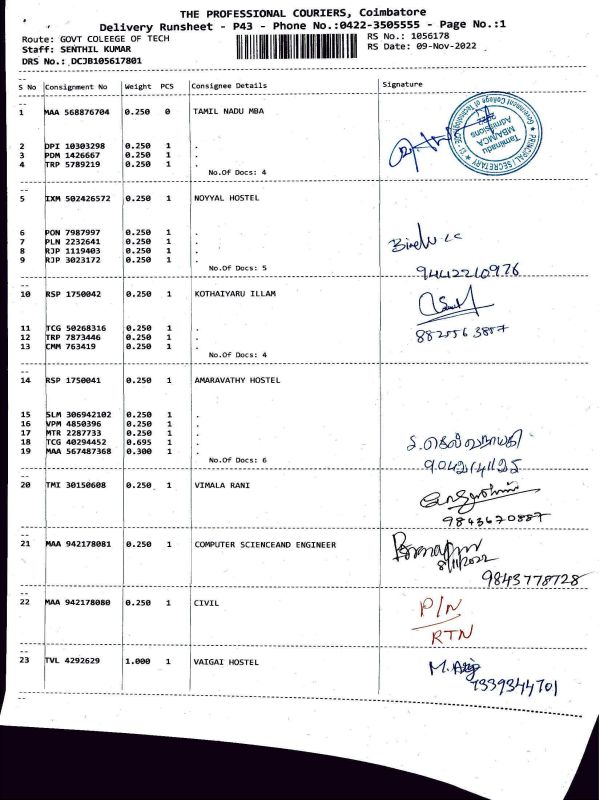 THE PROFESSIONAL COURIERS, Coimbatore
Delivery Runsheet - P43 - Phone No.:0422-3505555 - Page No.:1
Route: GOVT COLEEGE OF TECH
RS No.: 1056178
Staff: SENTHIL KUMAR
RS Date: 09-Nov-2022
DRS No.: DCJB105617801
S No Consignment No Weight PCS Consignee Details Signature
1 MAA 568876704 0.250 0 TAMIL NADU MBA
PRINCIPAL / SECRETARY
Government College of Technology
Tamilnadu
MBA/MCA
Admissions
2022
2 DPI 10303298 0.250 1 .
3 PDM 1426667 0.250 1 .
4 TRP 5789219 0.250 1 .
No.Of Docs: 4
5 IXM 502426572 0.250 1 NOYYAL HOSTEL
6 PON 7987997 0.250 1 .
7 PLN 2232641 0.250 1 .
8 RJP 1119403 0.250 1 .
9 RJP 3023172 0.250 1 .
No.Of Docs: 5
9442210976
10 RSP 1750042 0.250 1 KOTHAIYARU ILLAM
11 TCG 50268316 0.250 1 .
12 TRP 7873446 0.250 1 .
13 CMM 763419 0.250 1 .
No.Of Docs: 4
8825563857
14 RSP 1750041 0.250 1 AMARAVATHY HOSTEL
15 SLM 306942102 0.250 1 .
16 VPM 4850396 0.250 1 .
17 MTR 2287733 0.250 1 .
18 TCG 40294452 0.695 1 .
19 MAA 567487368 0.300 1 .
No.Of Docs: 6
20 TMI 30150608 0.250 1 VIMALA RANI
9843670887
21 MAA 942178081 0.250 1 COMPUTER SCIENCEAND ENGINEER
8/11/2022
9843778728
22 MAA 942178080 0.250 1 CIVIL
P/N
RTN
23 TVL 4292629 1.000 1 VAIGAI HOSTEL
7339344701